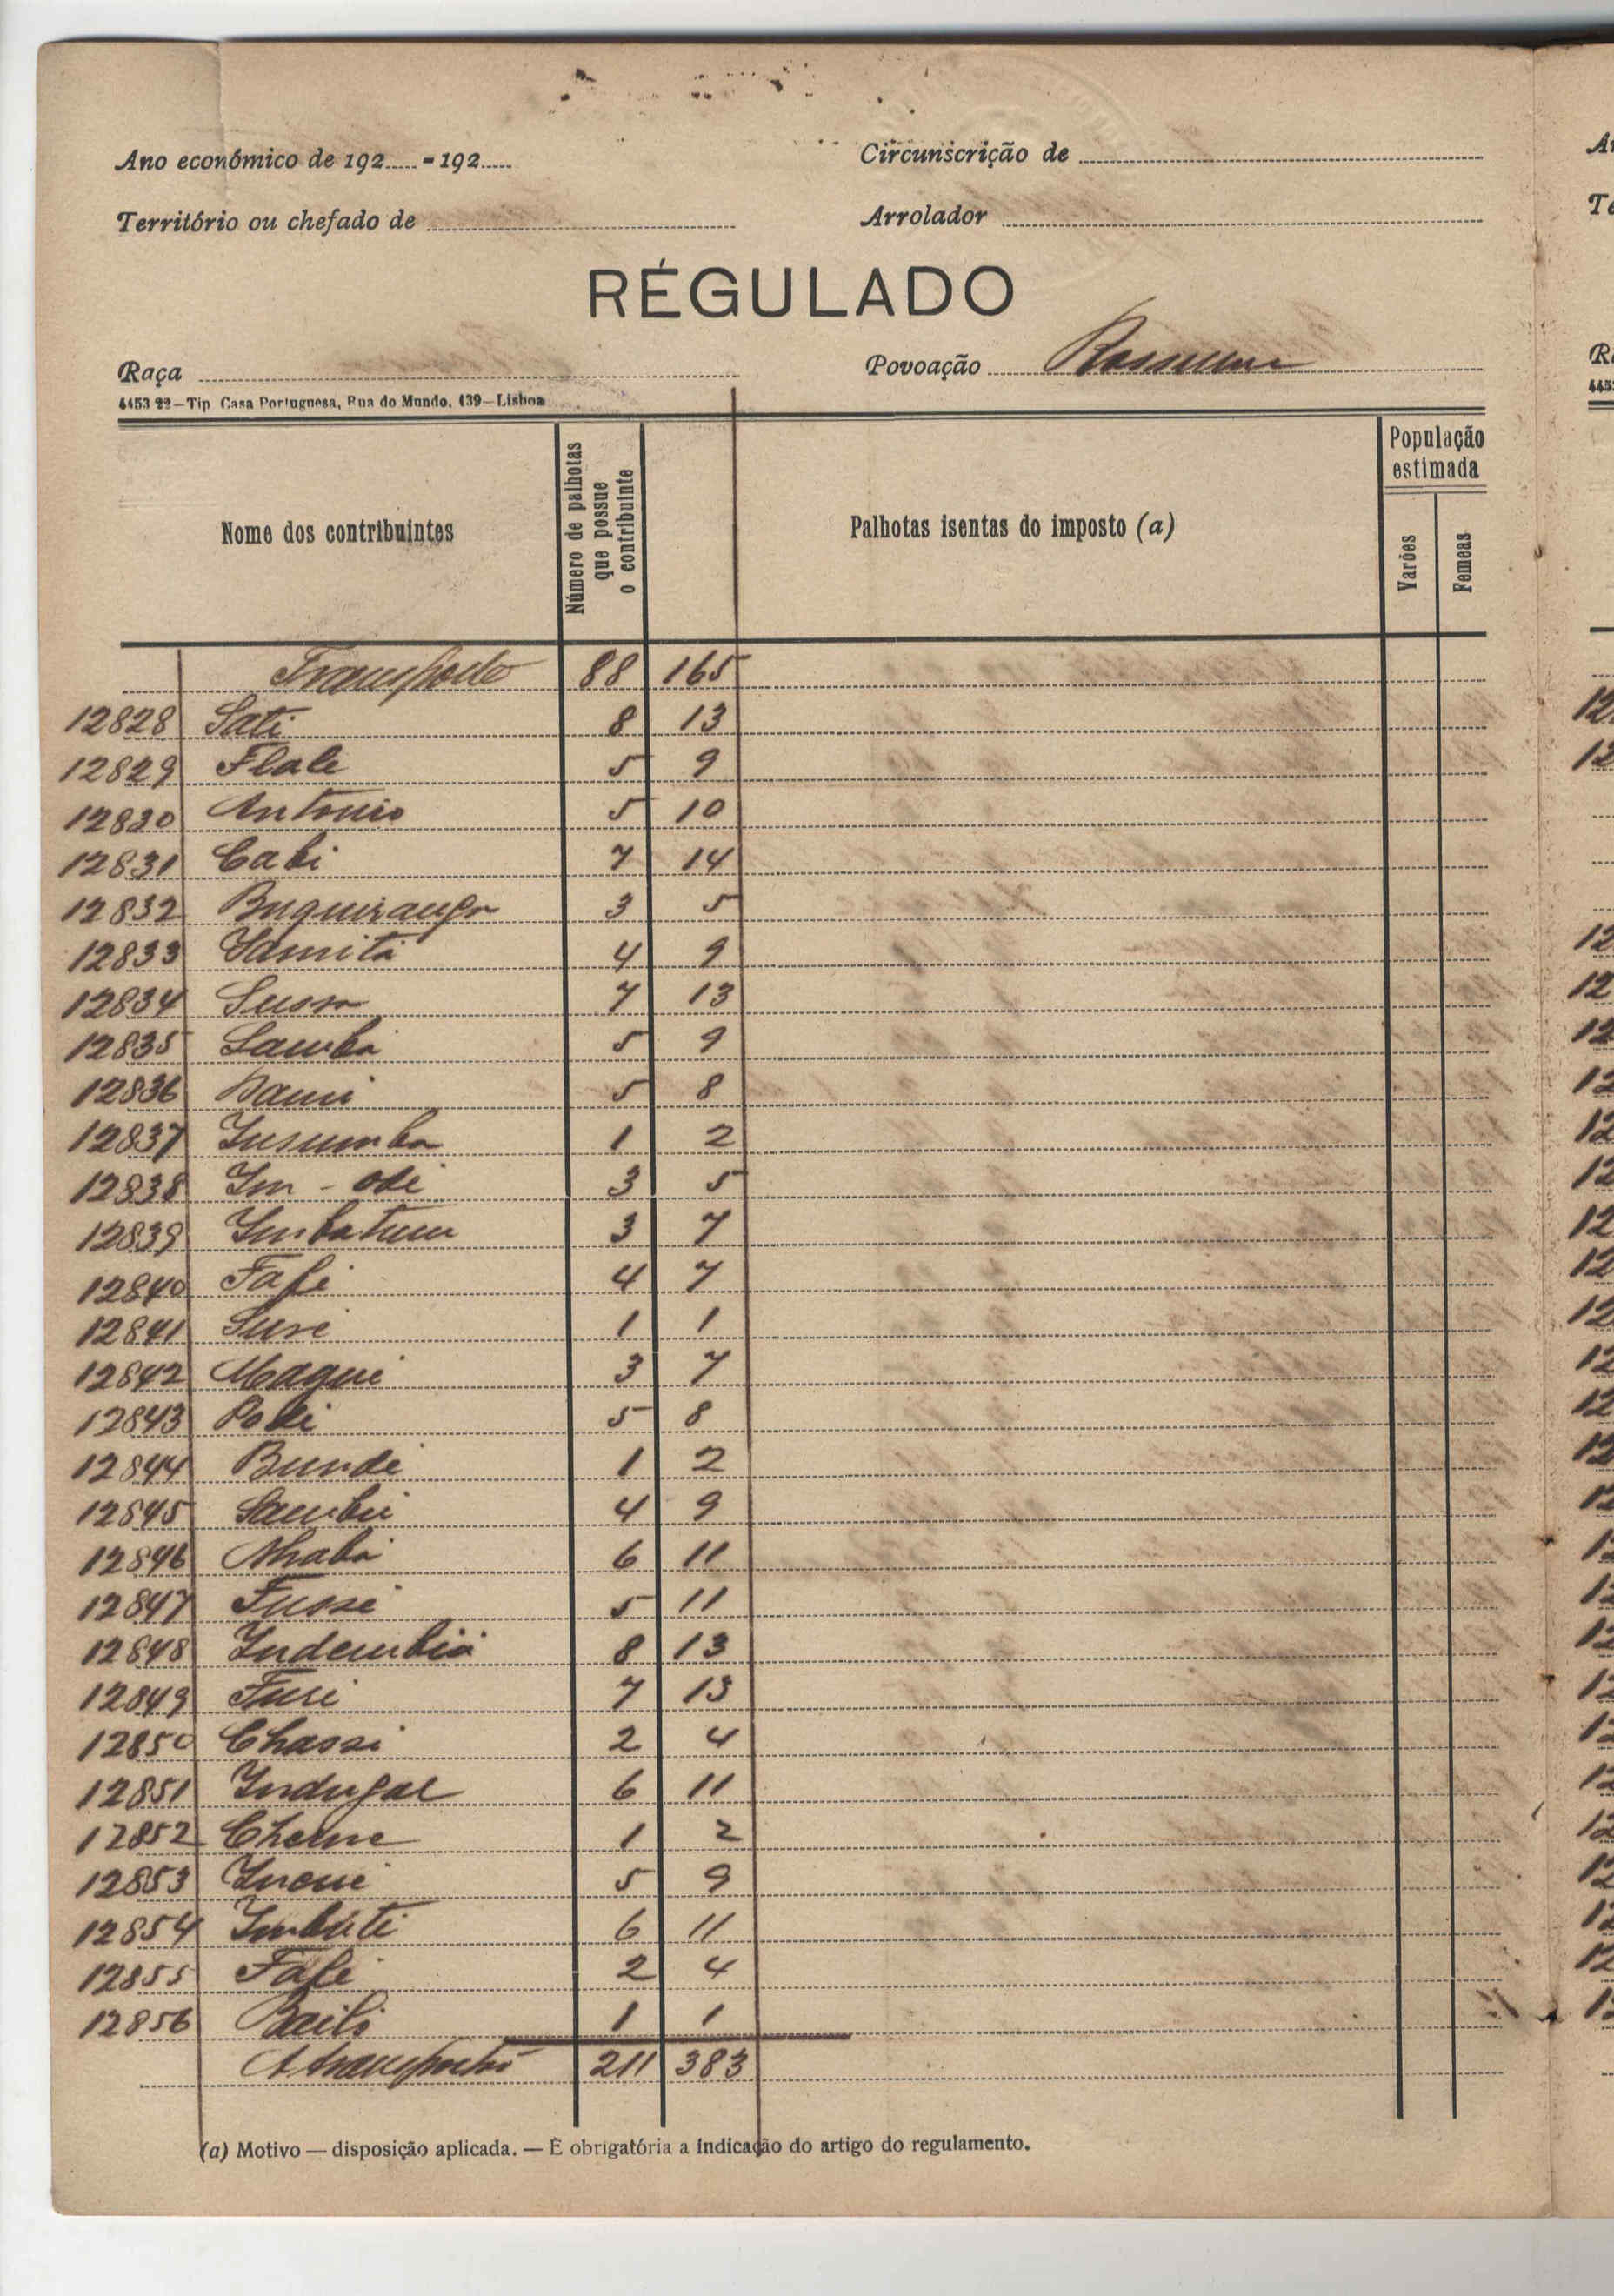 Ano económico de 192..... - 192.....
Circunscrição de
Território ou chefado de
Arrolador
RÉGULADO
Raça
Povoação
4453 22—Tip. Casa Portuguesa, Rua do Mundo, 139—Lisboa
Nome dos contribuintes
Número de palhotas que possue o contribuinte
Palhotas isentas do imposto (a)
População estimada
Varões
Femeas
Transporte 88 165
12828 Sati 8 13
12829 Flale 5 9
12830 Antonio 5 10
12831 Cabi 7 14
12832 3 5
12833 4 9
12834 Sussa 7 13
12835 Samba 5 9
12836 5 8
12837 Insumba 1 2
12838 Im - odi 3 5
12839 3 7
12840 Fafe 4 7
12841 1 1
12842 Maqué 3 7
12843 5 8
12844 Bunde 1 2
12845 Sambú 4 9
12846 6 11
12847 Fusse 5 11
12848 Indembiá 8 13
12849 7 13
12850 Chassi 2 4
12851 Indufal 6 11
12852 1 2
12853 5 9
12854 Imbuti 6 11
12855 Fafe 2 4
12856 1 1
A transportar 211 383
(a) Motivo — disposição aplicada. — É obrigatória a indicação do artigo do regulamento.